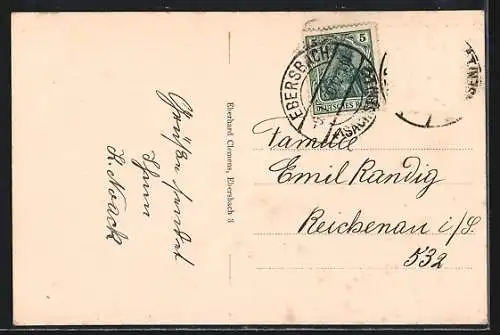 Grüße sendet
Ihnen
K. Noack
Eberhard Clemens, Ebersbach
EBERSBACH
(SACHSEN)
5
DEUTSCHES REICH
Familie
Emil Randig
Reichenau i/S.
532